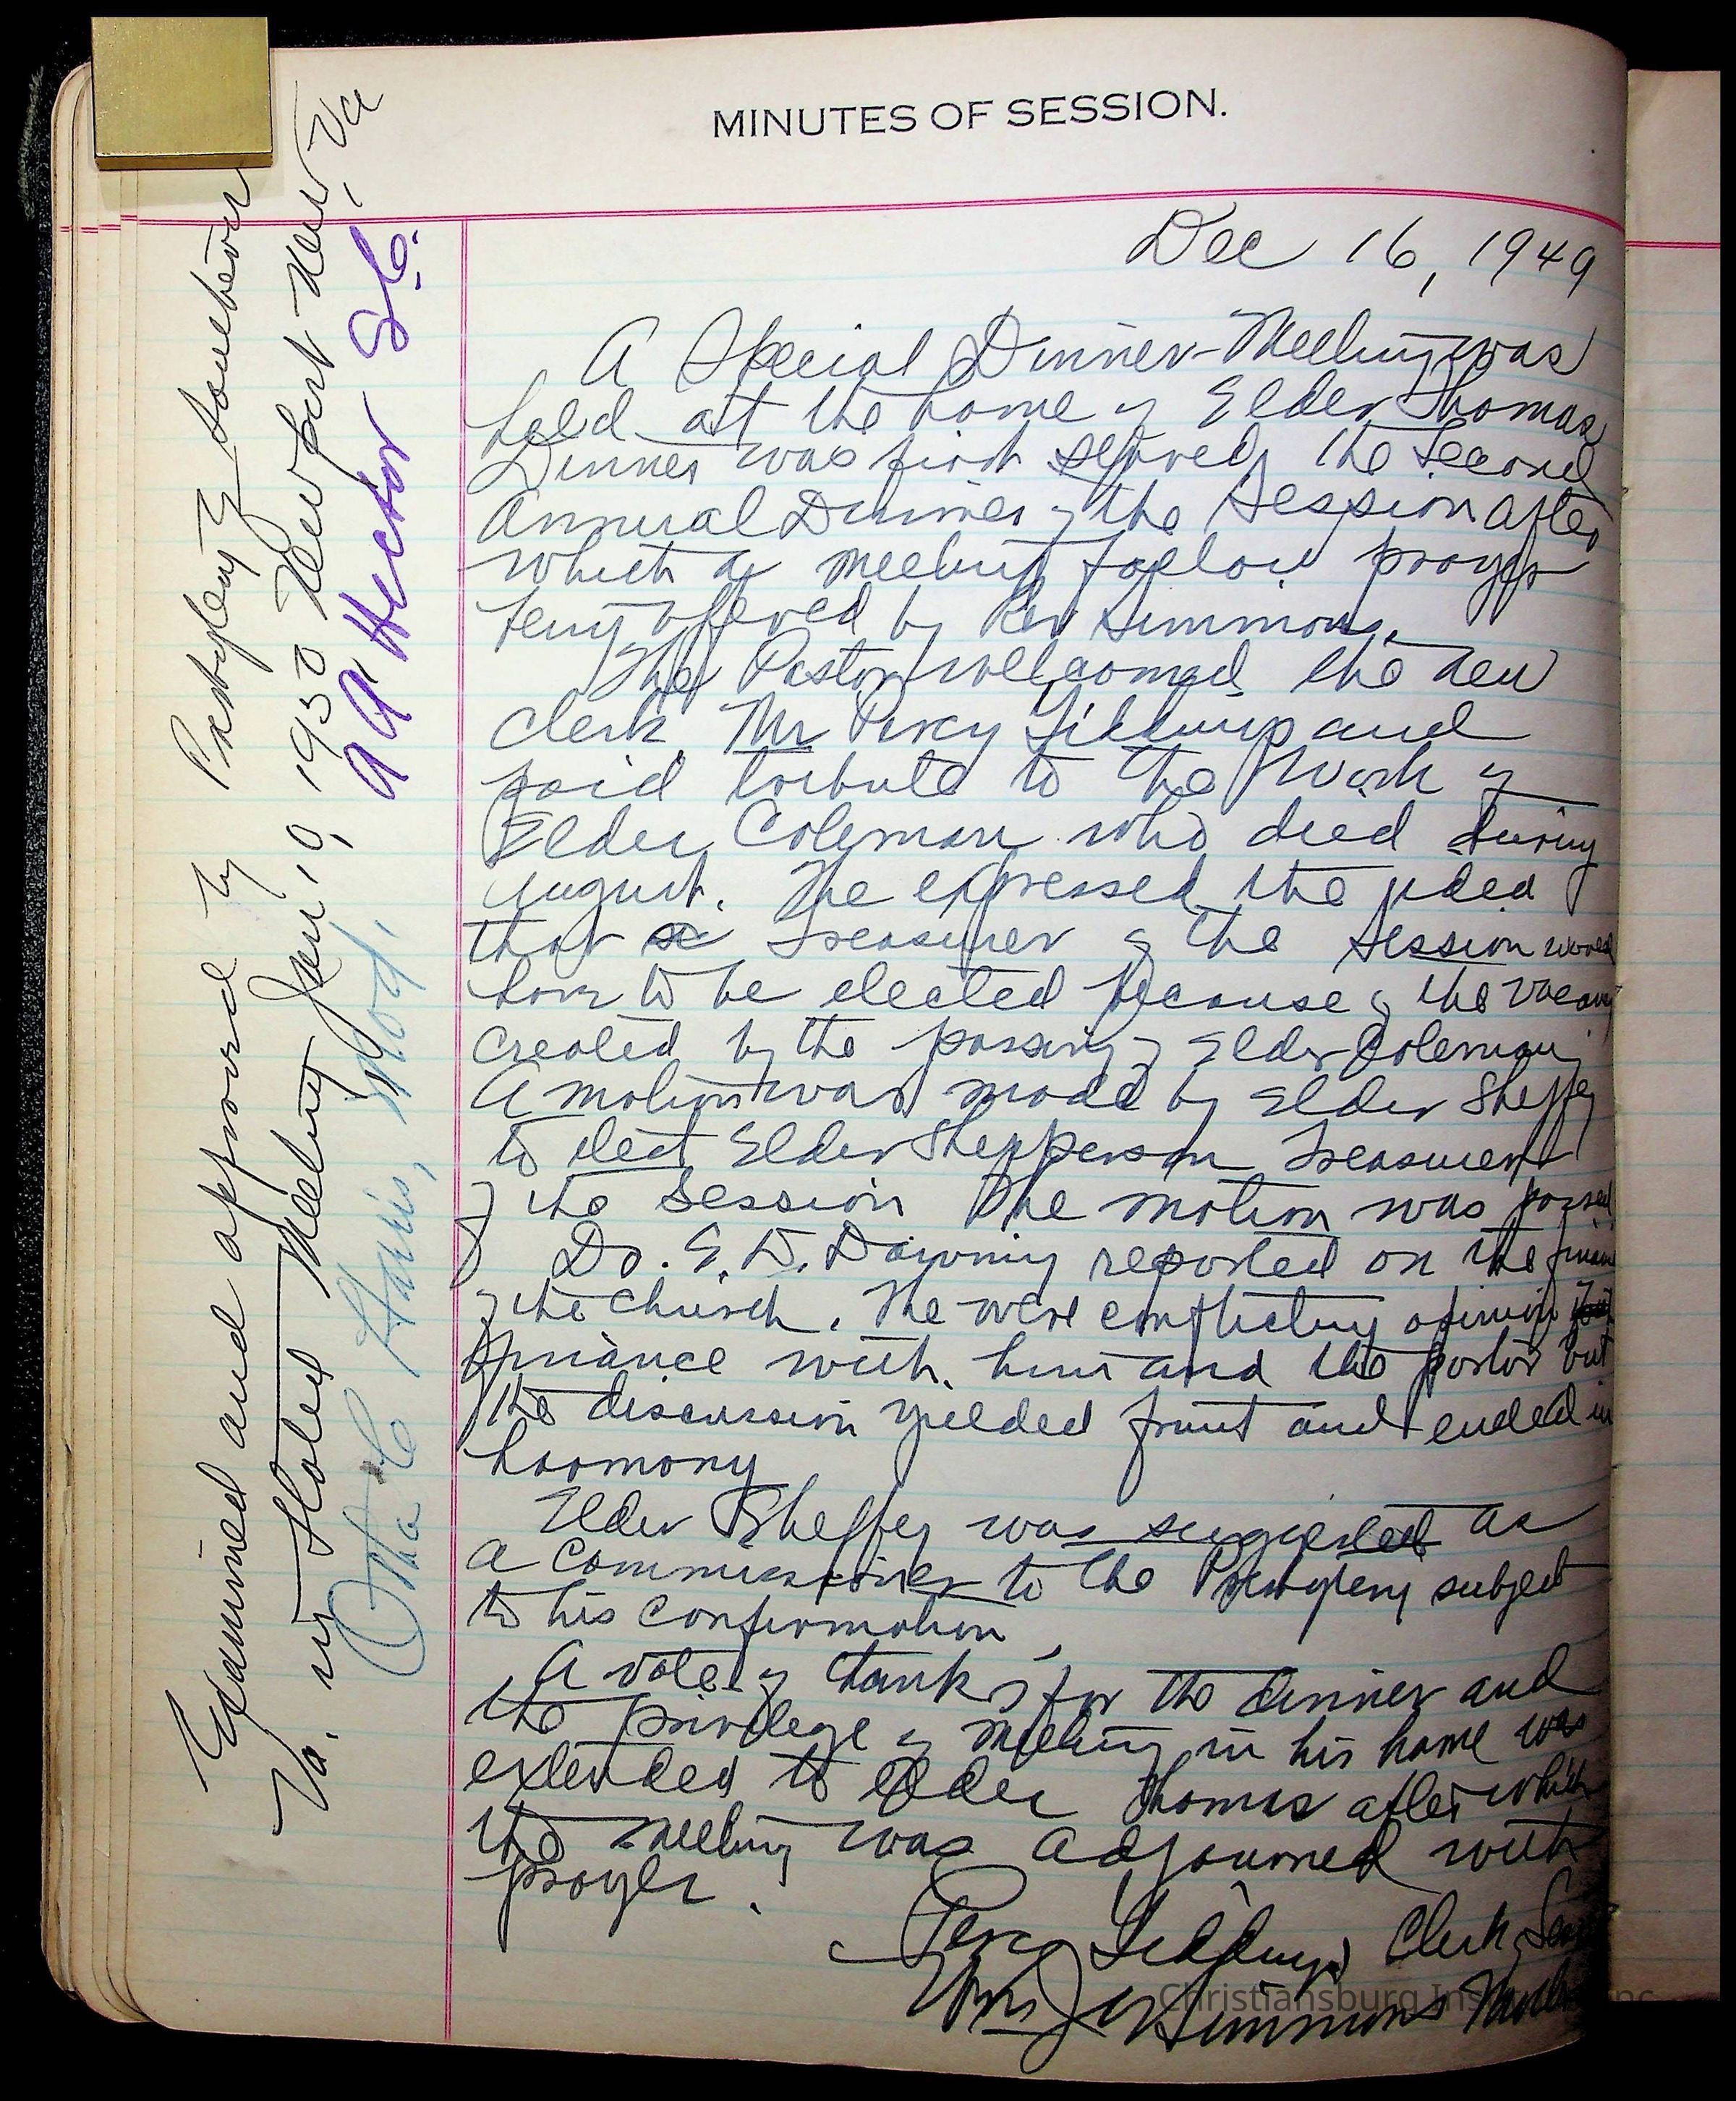 MINUTES OF SESSION.
Dec 16, 1949
A Special Dinner-Meeting was
held at the home of Elder Thomas
Dinner was first served, the Second
Annual Dinner of the Session after
which a meeting follow prayer
being offered by Rev Simmons.
The Pastor wellcomed the new
clerk Mr Percy Giddings and
paid tribute to the work of
Elder Coleman who died during
August. He expressed the
that Treasurer of the Session
have to be elected because of the
created by the passing of Elder Coleman
A motion was made by Elder Sheffey
to elect Elder Shepperson Treasurer
of the Session The motion was passed
Dr. E. D. Downing reported on the
of the church. The were conflicting
finance with him and the pastor but
the discussion yielded fruit and ended in
harmony
Elder Sheffey was suggested as
a commissioner to the subject
to his confirmation
A vote of thanks for the dinner and
the privilege of meeting in his home was
extended to Elder Thomas after which
the meeting was adjourned with
prayer.
Percy Giddings Clerk
Simmons
Examined and approved by Presbytery of Southern
Va. in Stated Meeting Jan. 19, 1950 Newport News, Va
Otha C Harris, Mod.
A A Hector S.C.
Christiansburg Inc